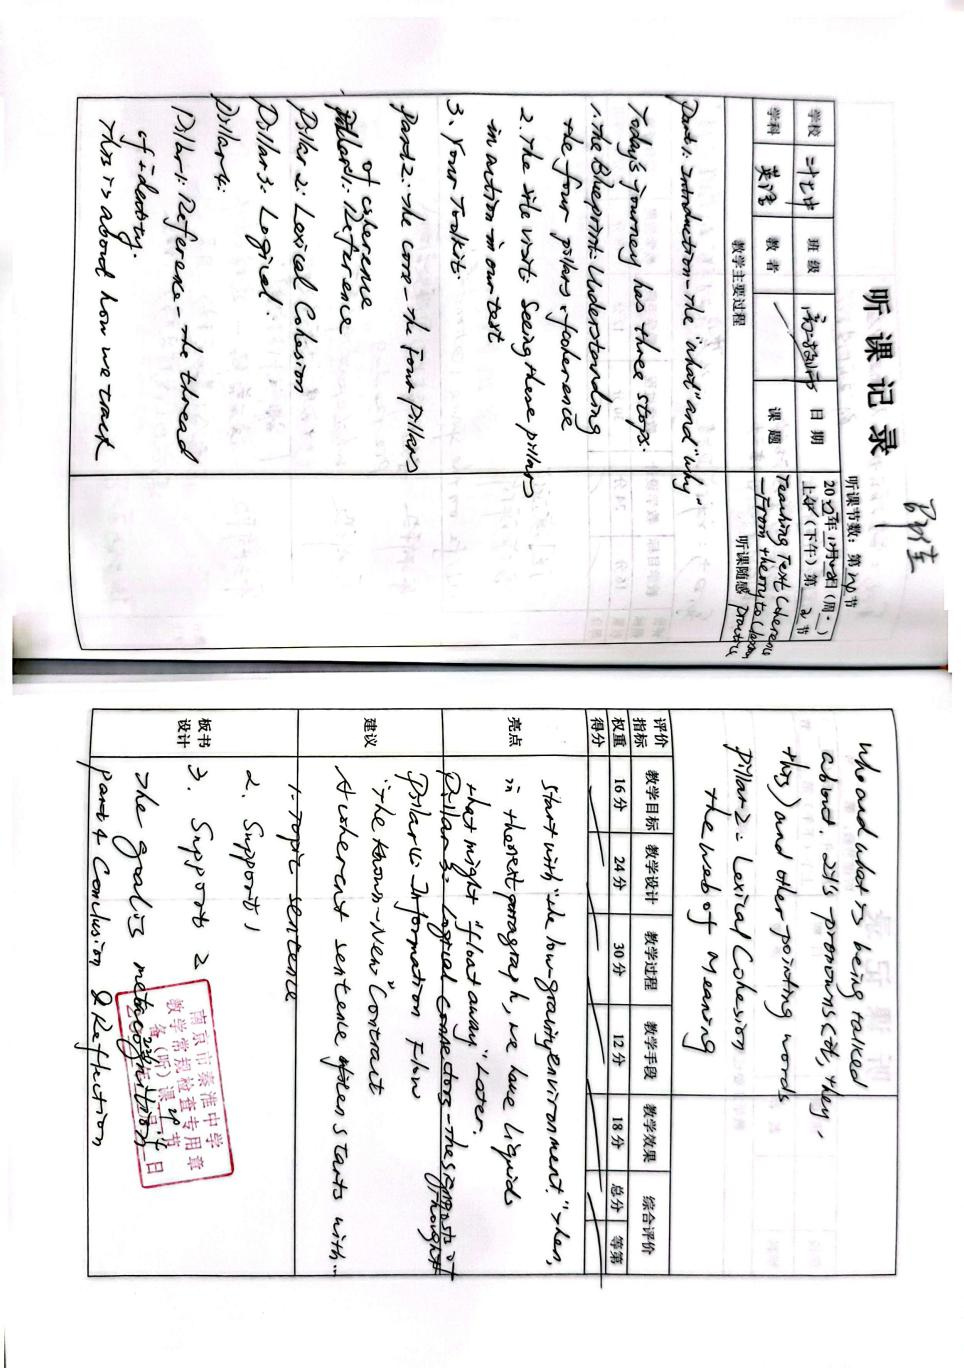 听课记录
听课节数：第 节
学校 二十七中 班级 日期 20 年 月 日（周一）
上午（下午）第 2 节
学科 英语 教者 课题 Teaching Text Coherence
—From theory to Classroom
practice
教学主要过程 听课随感
Part 1: Introduction—The "what" and "why"
Today's journey has three stops.
1. The Blueprint: Understanding
the four pillars of coherence
2. The site visit: Seeing these pillars
in action in our text
3. Your Toolkit:
part 2: The core—The Four Pillars
of coherence
Pillar 1: Reference
Pillar 2: Lexical Cohesion
Pillar 3: Logical
Pillar 4:
Pillar 1: Reference—The thread
of identity.
This is about how we track
who and what is being talked
about. It's pronouns (it, they,
this) and other pointing words
Pillar 2: Lexical Cohesion
The web of Meaning
评价指标 教学目标 教学设计 教学过程 教学手段 教学效果 综合评价
权重 16分 24分 30分 12分 18分 总分 等第
得分
亮点
start with "the low-gravity environment." Then,
in the next paragraph, we have liquids
that might "float away" Later.
Pillar 3: Logical Connectors—The signposts of
thought
建议
Pillar 4: Information Flow
"The Known-New" Contract
A coherent sentence often starts with...
板书设计
1. Topic sentence
2. Support 1
3. Support 2
The goal is metacognition
part 4 Conclusion & Reflection
南京市秦淮中学
教学常规检查专用章
备（听）课 节
年 月 日